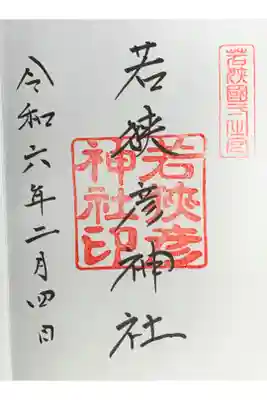 若狹國一之宮
若狭彦神社
若狹彦神社印
令和六年二月四日